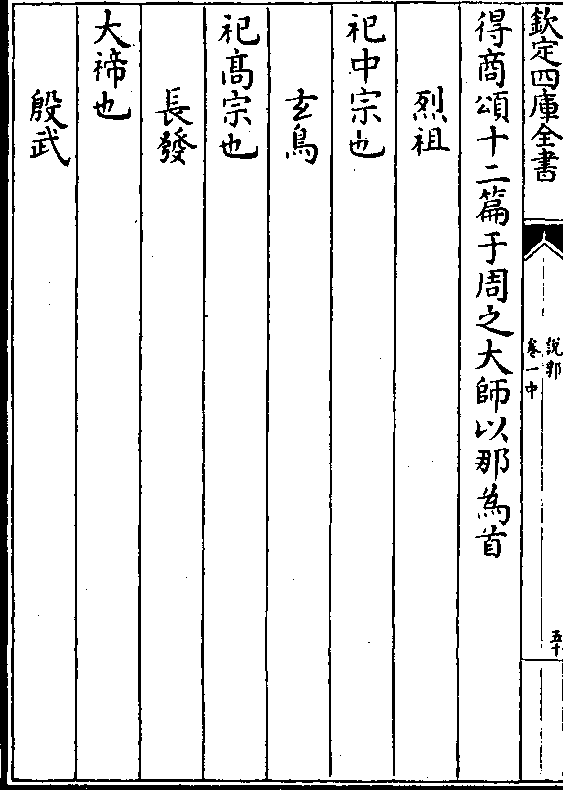 欽定四庫全書
說郛
卷一中
五十
得商頌十二篇于周之大師以那為首
烈祖
祀中宗也
玄鳥
祀髙宗也
長發
大禘也
殷武